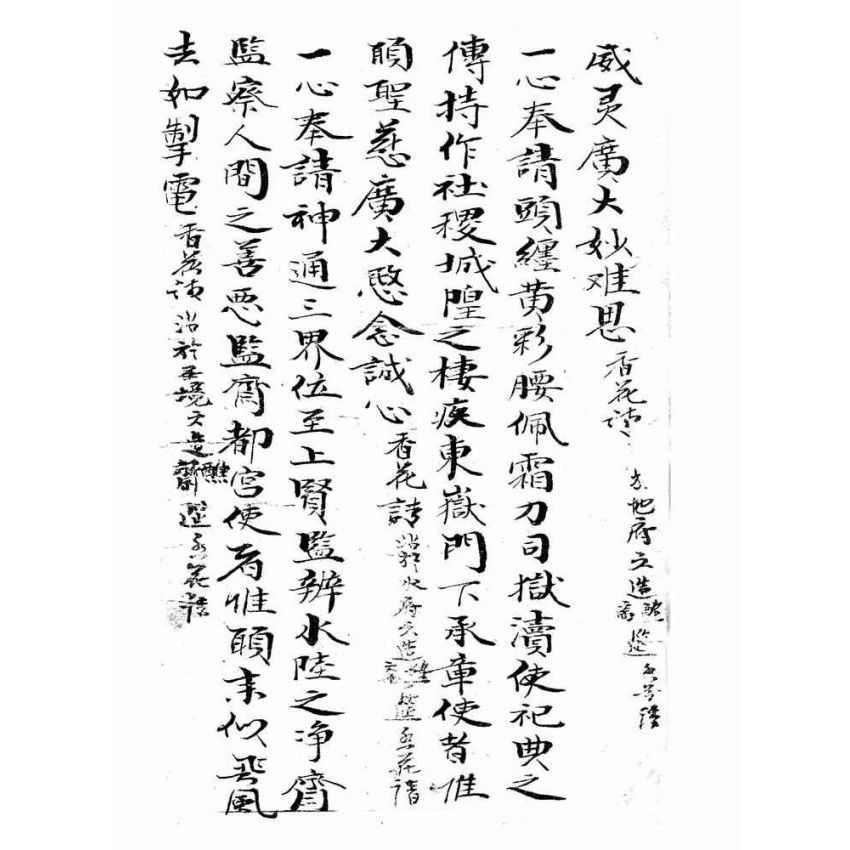 威灵廣大妙难思 香花请 地府文造
一心奉請頭纏黄彩腰佩霜刀司獄瀆使祀典之
傳持作社稷城隍之棲疾東嶽門下承章使者惟
願聖慈廣大愍念誠心 香花請 水府文造 香花請
一心奉請神通三界位至上賢監辨水陸之净齋
監察人間之善恶監齋都官使者惟願来似飛風
去如掣電 香花请 於境文造齋醮 香花請